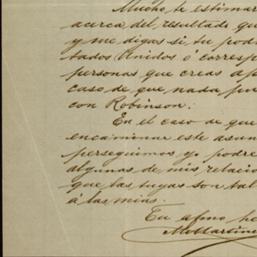 Mucho te estimar
acerca del resultado qu
y me digas si tu pod
tados Unidos ó corresp
personas que creas a p
caso de que nada pu
con Robinson.
En el caso de que
encaminar este asun
perseguimos y podre
algunas de mis relacio
que las tuyas son tal
á las mias.
Tu afmo he
MMartine